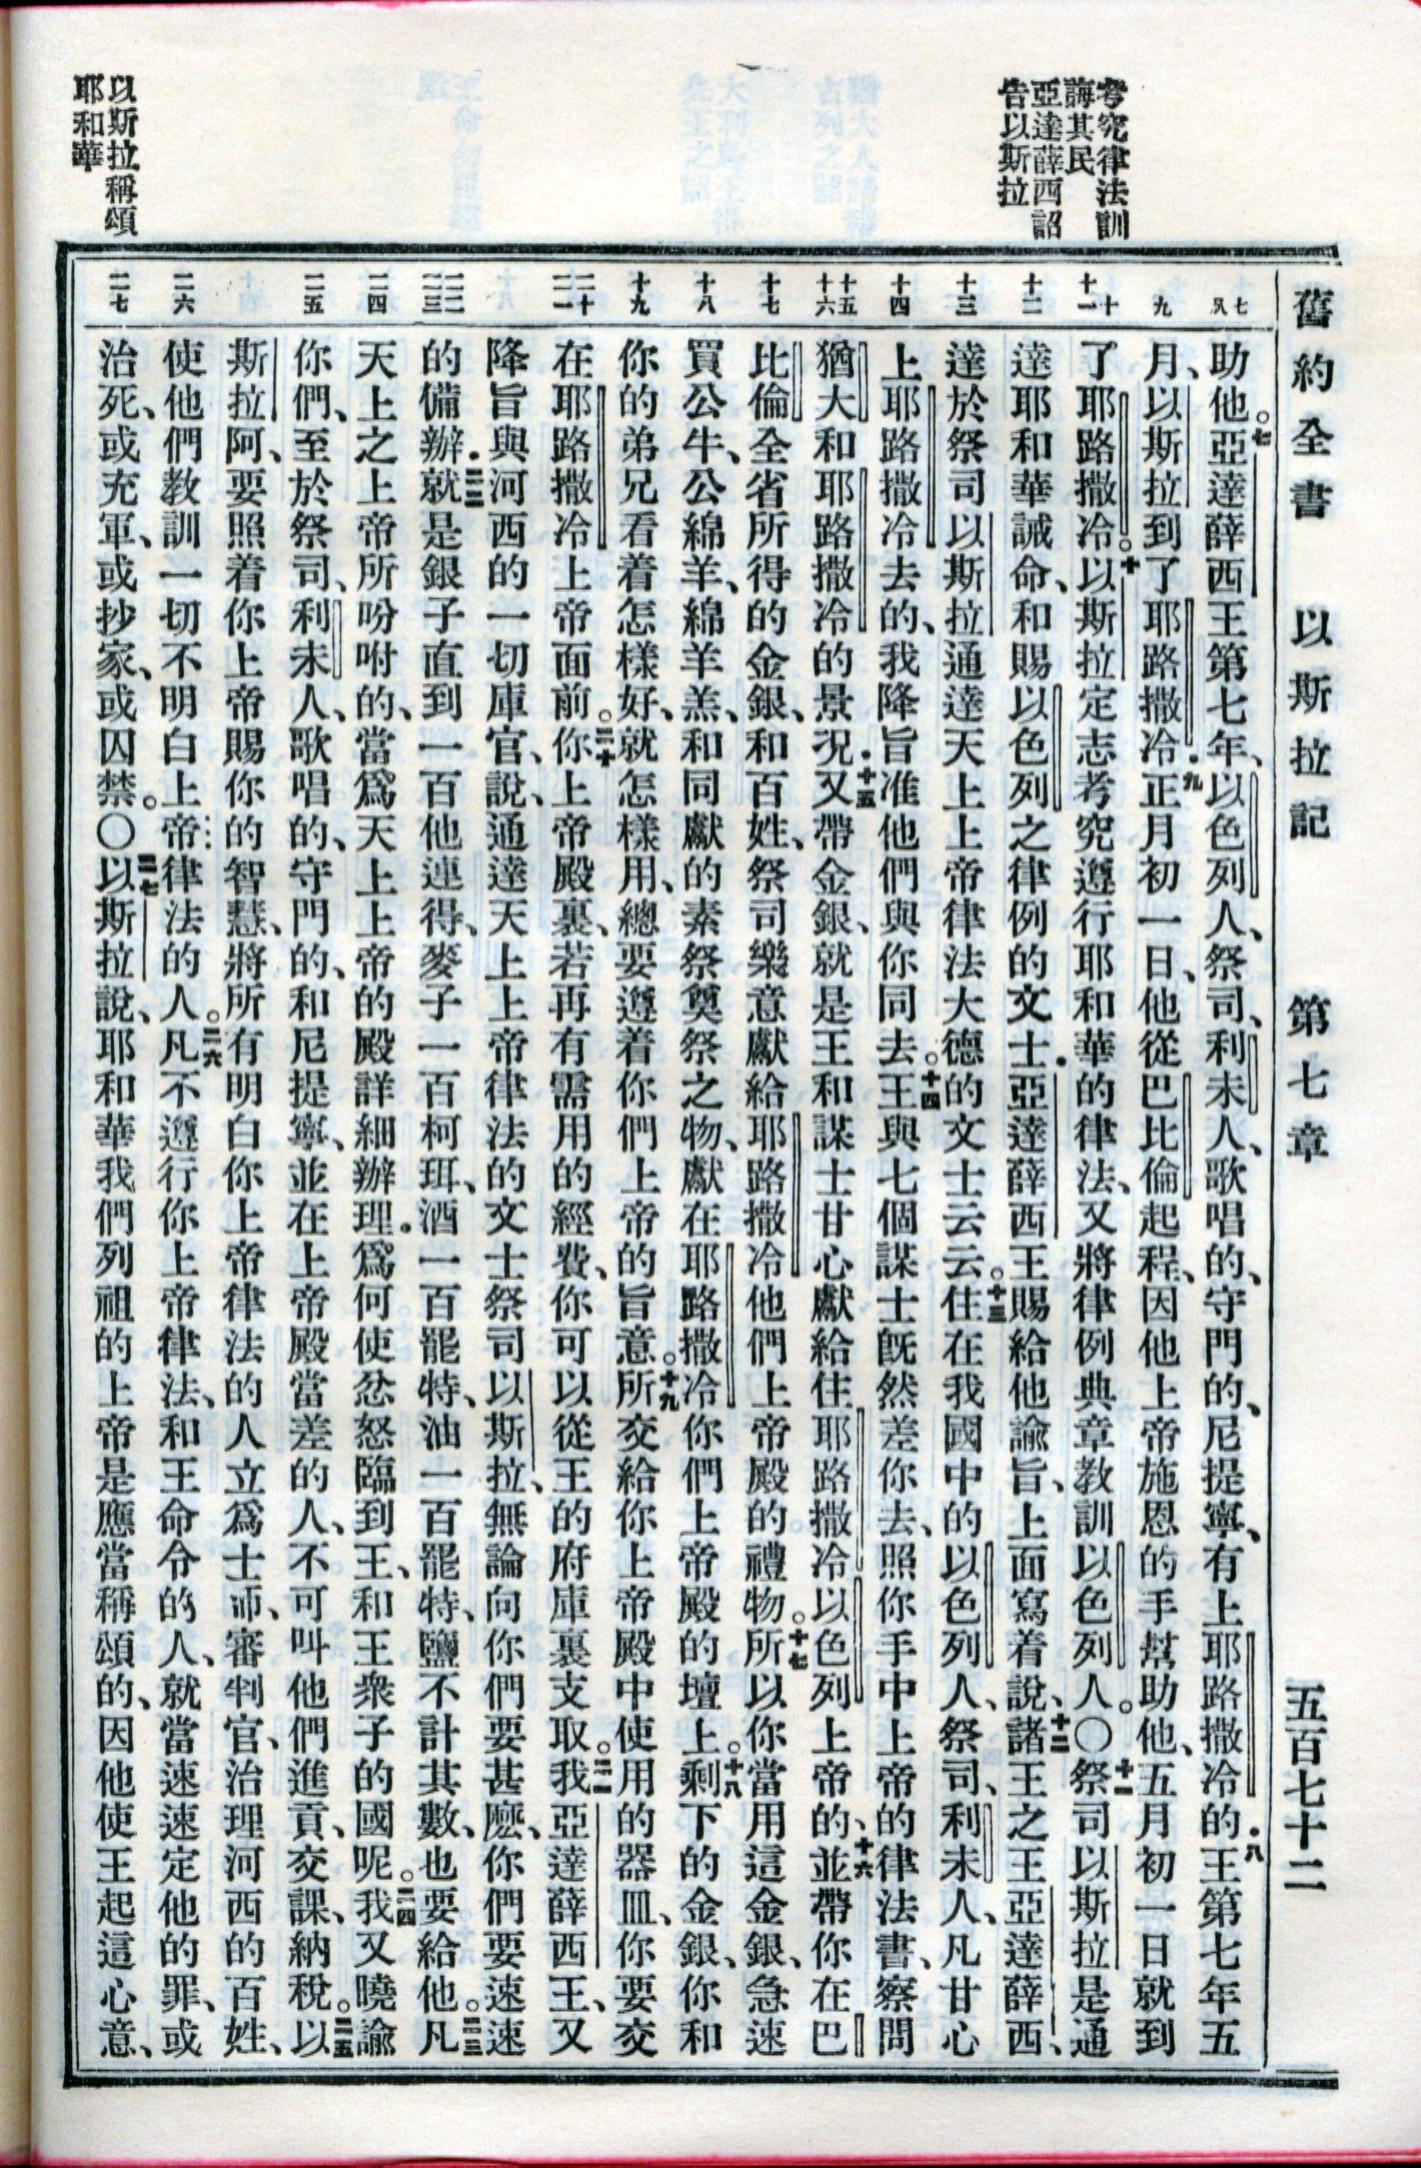 舊約全書　以斯拉記　第七章　五百七十二
考究律法訓
誨其民
亞達薛西詔
告以斯拉
以斯拉稱頌
耶和華
七
八
九
十
十一
十二
十三
十四
十五
十六
十七
十八
十九
二十
二一
二二
二三
二四
二五
二六
二七
助他。七亞達薛西王第七年、以色列人、祭司、利未人、歌唱的、守門的、尼提寧、有上耶路撒冷的.八王第七年五
月、以斯拉到了耶路撒冷.九正月初一日、他從巴比倫起程、因他上帝施恩的手幫助他、五月初一日就到
了耶路撒冷。十以斯拉定志考究遵行耶和華的律法、又將律例典章教訓以色列人。〇十一祭司以斯拉是通
達耶和華誡命、和賜以色列之律例的文士.亞達薛西王賜給他諭旨、上面寫着說、十二諸王之王亞達薛西、
達於祭司以斯拉通達天上上帝律法大德的文士云云。十三住在我國中的以色列人、祭司、利未人、凡甘心
上耶路撒冷去的、我降旨准他們與你同去。十四王與七個謀士旣然差你去、照你手中上帝的律法書、察問
猶大和耶路撒冷的景況.十五又帶金銀、就是王和謀士甘心獻給住耶路撒冷以色列上帝的、十六並帶你在巴
比倫全省所得的金銀、和百姓、祭司樂意獻給耶路撒冷他們上帝殿的禮物。十七所以你當用這金銀、急速
買公牛、公綿羊、綿羊羔、和同獻的素祭奠祭之物、獻在耶路撒冷你們上帝殿的壇上。十八剩下的金銀、你和
你的弟兄看着怎樣好、就怎樣用、總要遵着你們上帝的旨意。十九所交給你上帝殿中使用的器皿、你要交
在耶路撒冷上帝面前。二十你上帝殿裏、若再有需用的經費、你可以從王的府庫裏支取。二一我亞達薛西王、又
降旨與河西的一切庫官、說、通達天上上帝律法的文士祭司以斯拉、無論向你們要甚麽、你們要速速
的備辦.二二就是銀子直到一百他連得、麥子一百柯珥、酒一百罷特、油一百罷特、鹽不計其數、也要給他。二三凡
天上之上帝所吩咐的、當爲天上上帝的殿詳細辦理.爲何使忿怒臨到王、和王衆子的國呢。二四我又曉諭
你們、至於祭司、利未人、歌唱的、守門的、和尼提寧、並在上帝殿當差的人、不可叫他們進貢、交課、納稅。二五以
斯拉阿、要照着你上帝賜你的智慧、將所有明白你上帝律法的人立爲士師、審判官、治理河西的百姓、
使他們教訓一切不明白上帝律法的人。二六凡不遵行你上帝律法、和王命令的人、就當速速定他的罪、或
治死、或充軍、或抄家、或囚禁。〇二七以斯拉說、耶和華我們列祖的上帝是應當稱頌的、因他使王起這心意、